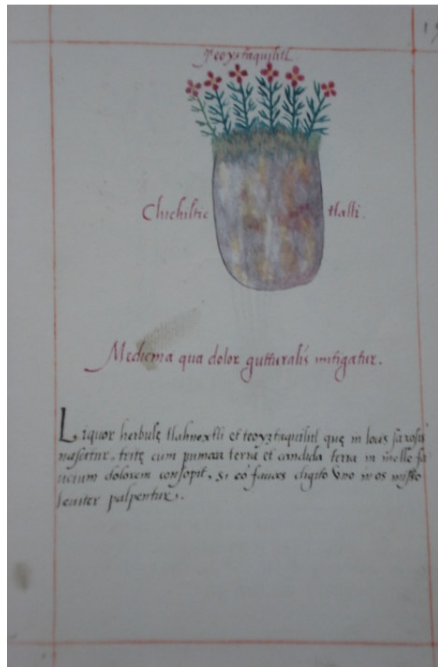 Teoyztaquilitl.
Chichiltic tlalli.
Medicina qua dolor gutturalis mitigatur.
Liquor herbulę tlalnextli et teoyztaquilitl quę in locis saxosis
nascitur, tritę cum pumicea terra et candida terra in melle fa
ucium dolorem consopit, si eo fauces digito uno in os misso
leuiter palpentur.